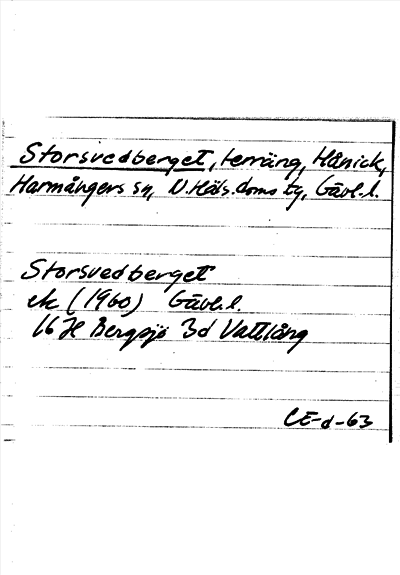 Storsvedberget, terräng, Hånick,
Harmångers sn, N.Häls.doms tg, Gävl.l.
Storsvedberget
ek (1960) Gävl.l.
16 H Bergsjö 3d Vattlång
CE-d-63